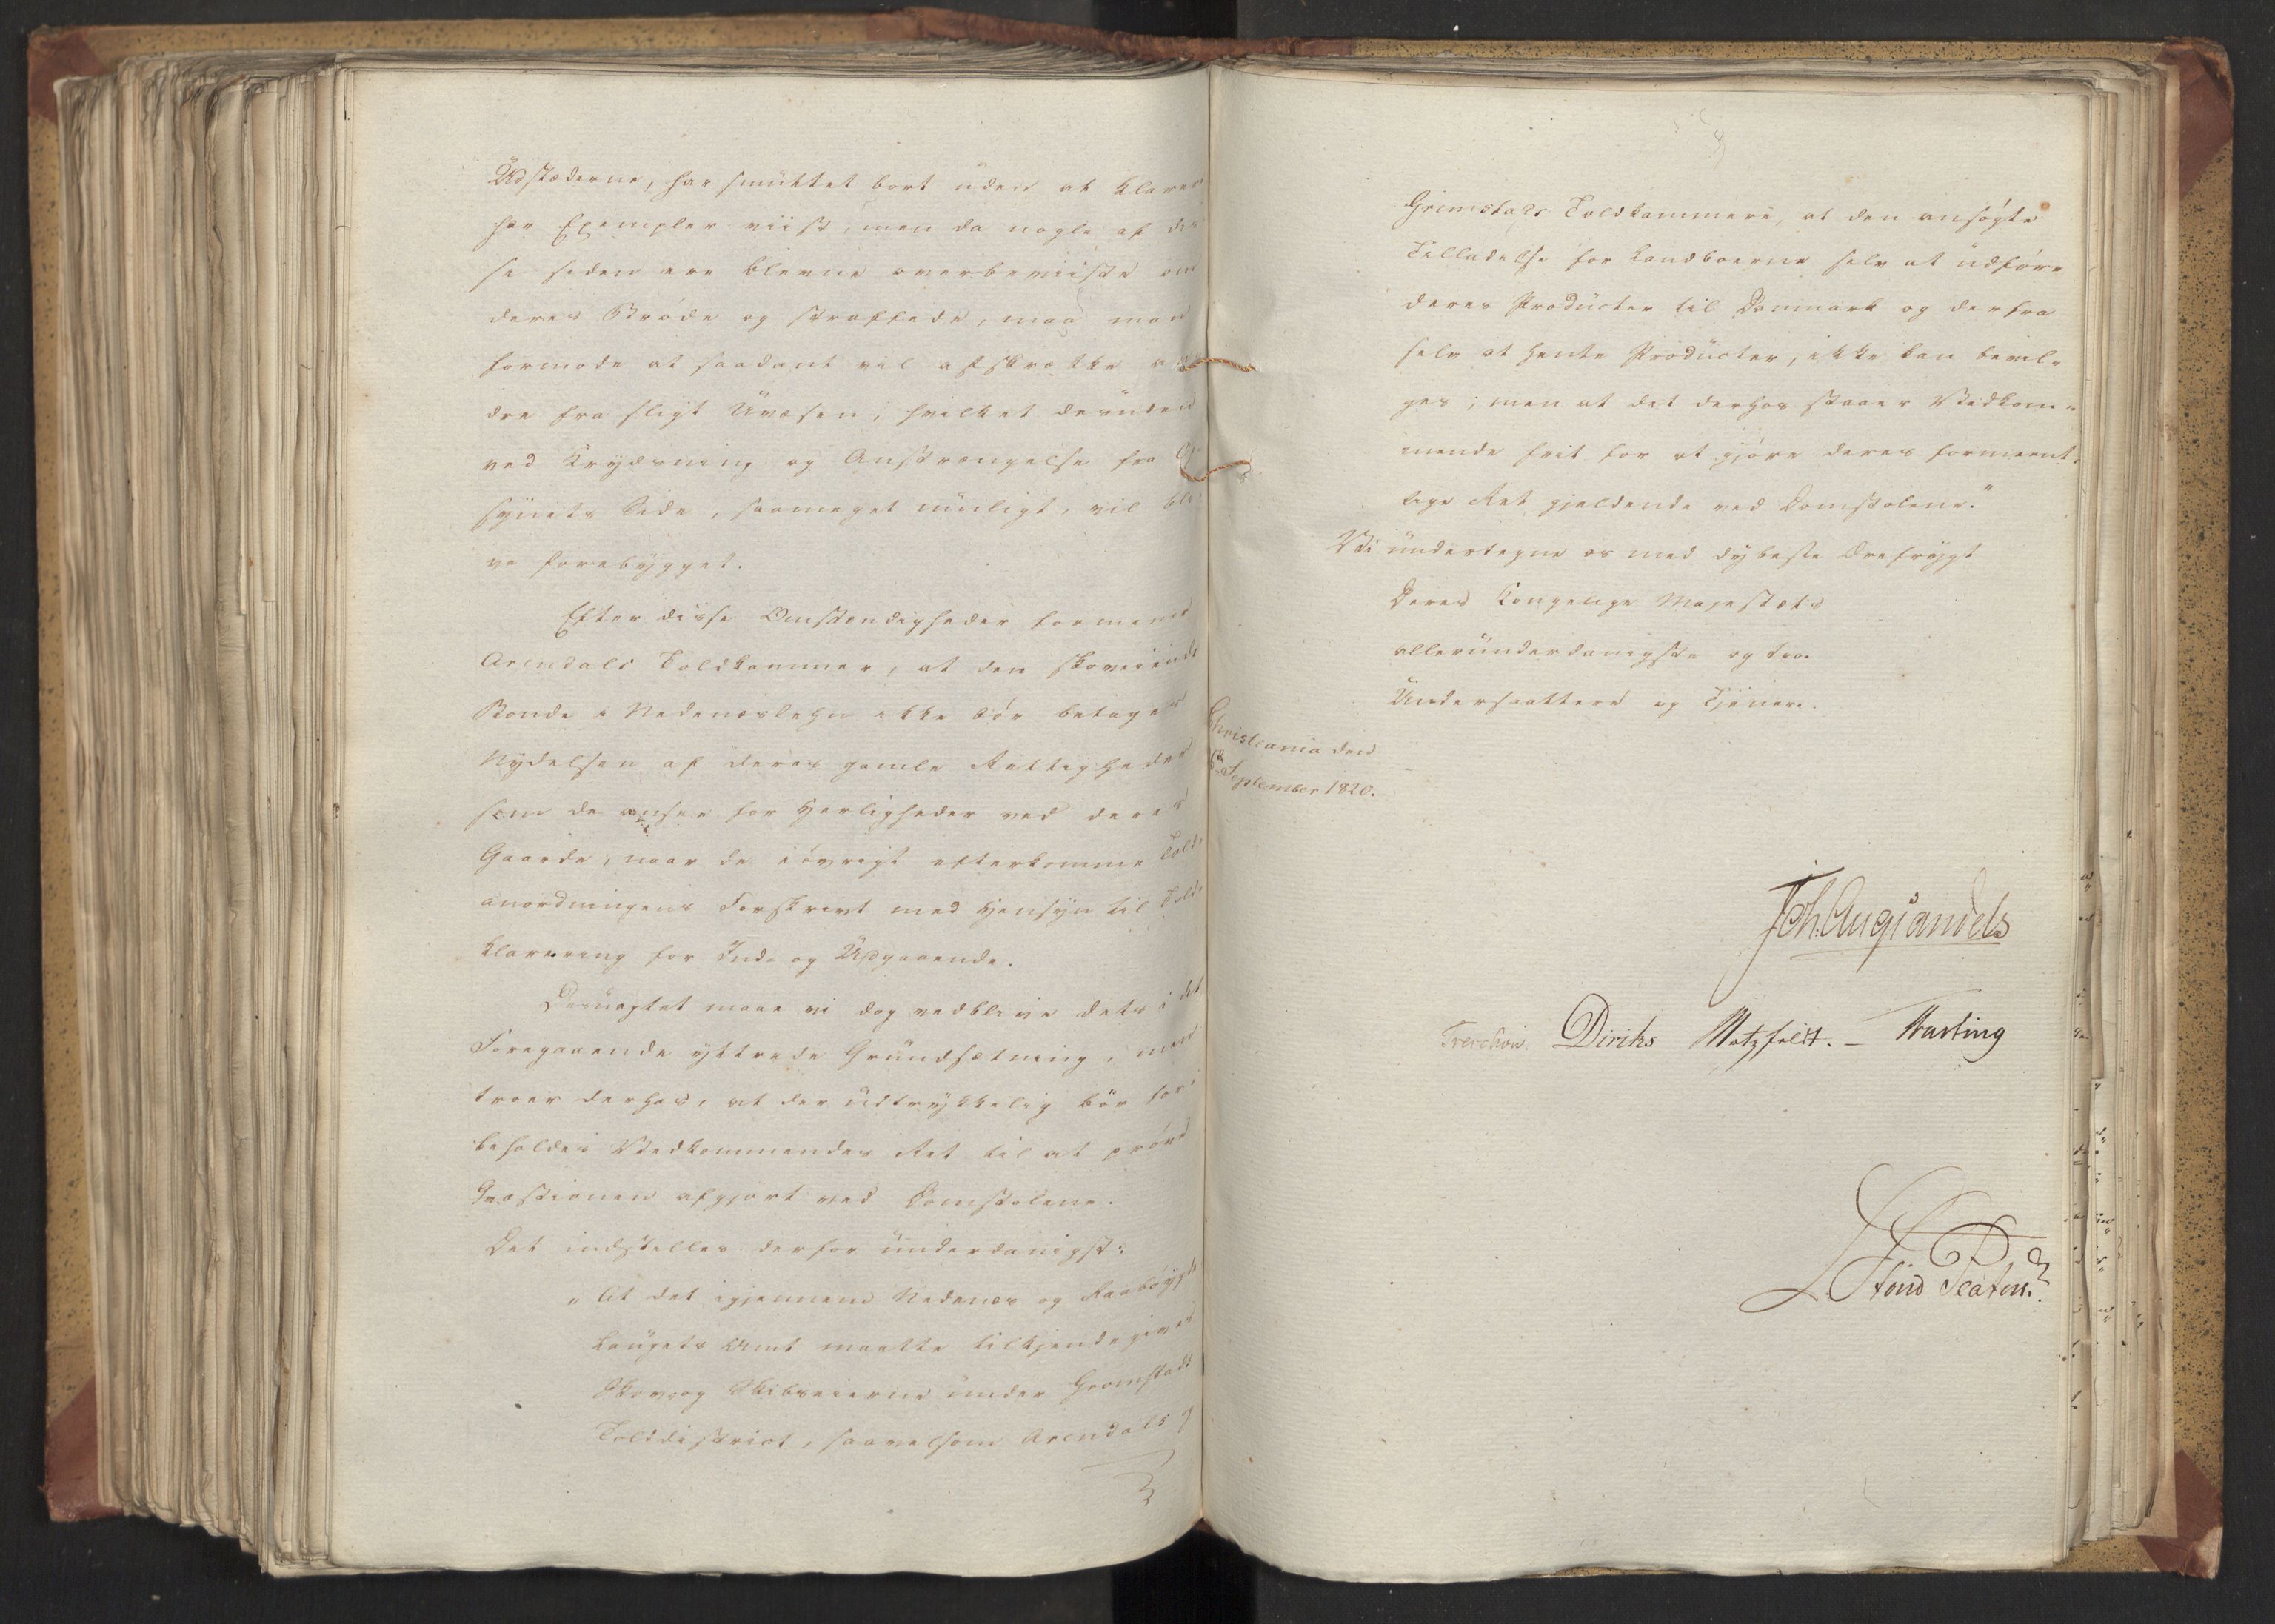 Udstæderne, har smuttet bort uden at klarere
har Exempler viist, men da nogle af des
se siden ere blevne overbeviiste om
deres Brøde og straffede, maa man
formode at saadant vil afskrække an
dre fra sligt Uvæsen, hvilket desuden
ved Krydsning og Anstrængelse fra Op
synets Side, saameget muligt, vil bli
ve forebygget.
Efter disse Omstændigheder formener
Arendals Toldkammer, at den skoveiende
Bonde i Nedenæslehn ikke bør betages
Nydelsen af deres gamle Rettigheder
som de ansee for Herligheder ved deres
Gaarde, naar de iøvrigt efterkomme Told-
anordningens Forskrevt med Hensyn til Told-
klarering for Ind- og Udgaaende.
Desuagtet maae vi dog vedblive dets i det
Foregaaende yttrede Grundsætning, men
troer derhos, at der udtrykkelig bør for-
beholdes Vedkommendes Ret til at prøve
Qvæstionen afgjort ved Domstolene.
Det indstilles derfor underdanigst:
"At det igjennem Nedenæs og Raabøyge
laugets Amt maatte tilkjendegives
Skov- og Skibseierne under Gromstads
Tolddistrict, saavelsom Arendals og
Grimstads Toldkammere, at den ansøgte
Tilladelse for Landboerne selv at udføre
deres Producter til Danmark og derfra
selv at hente Producter, ikke kan bevil-
ges; men at det derhos staaer Vedkom-
mende frit for at gjøre deres formeent-
lige Ret gjeldende ved Domstolene."
Vi undertegne os med dybeste Ærefrygt
Deres Kongelige Majestæts
allerunderdanigste og troe
Undersaattere og Tjenere.
Christiania den
6te September 1820.
Joh. Aug. Sandels
Treschow. Diriks Motzfeldt. - Fasting